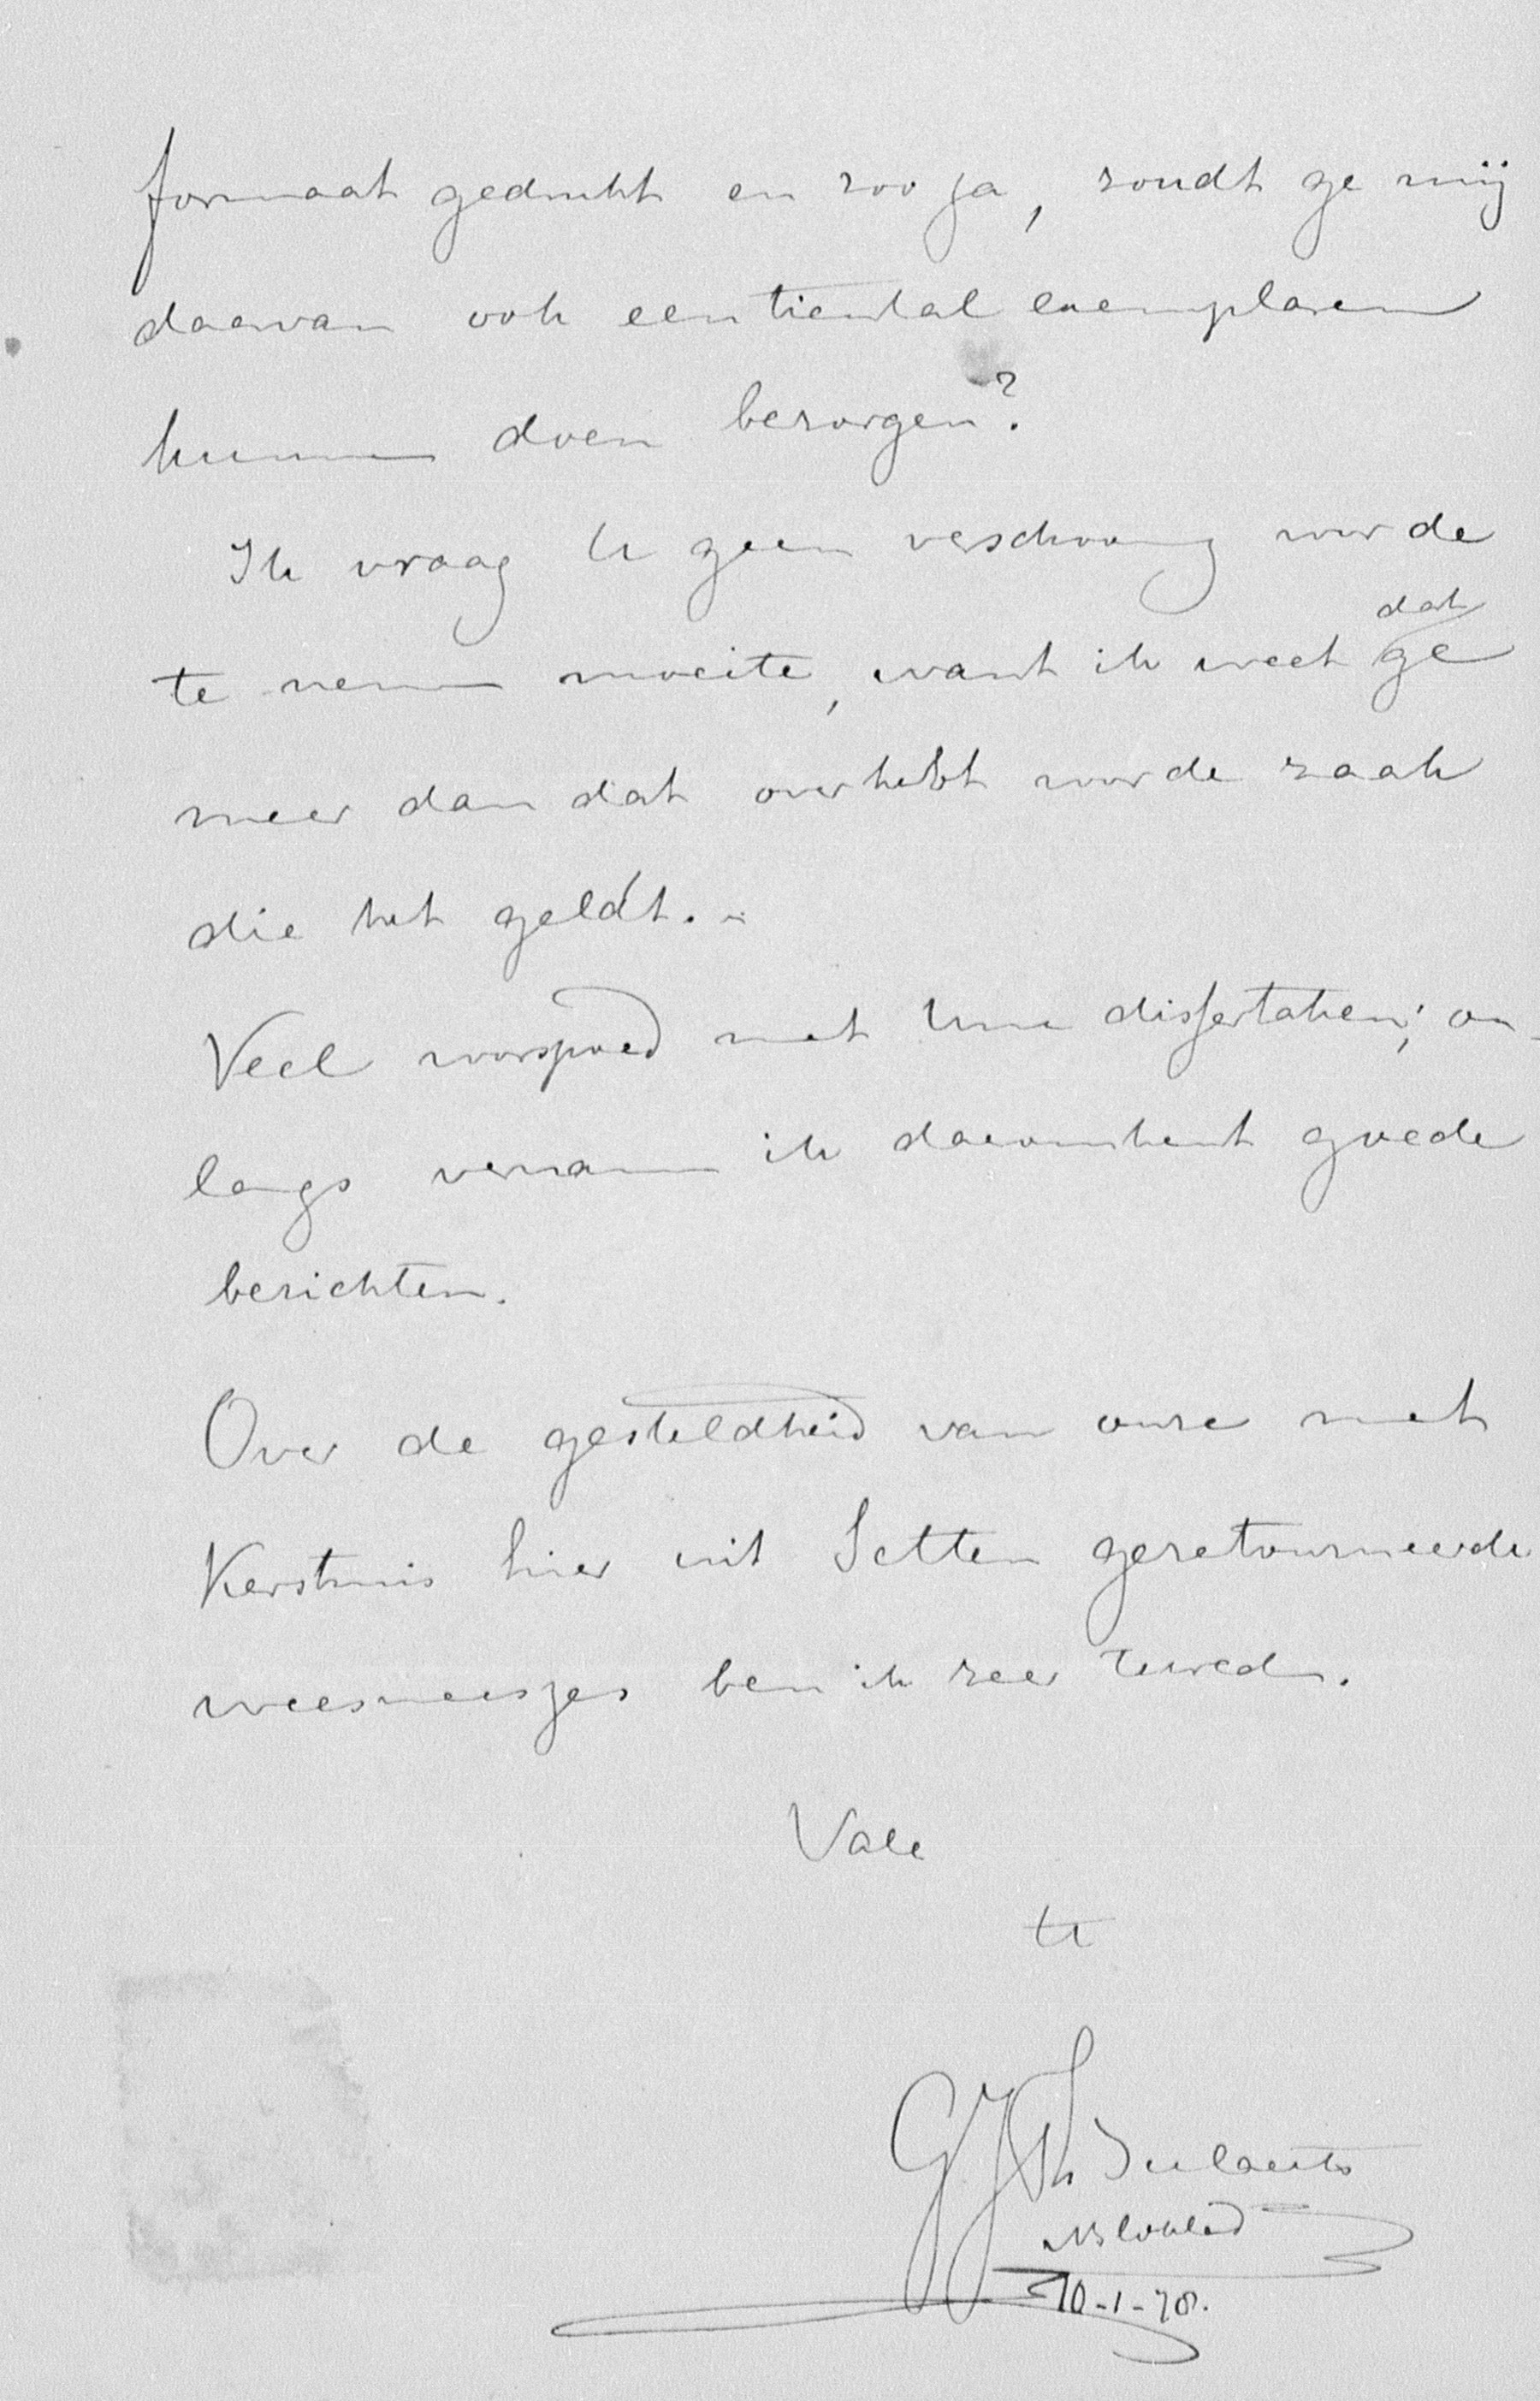 formaat gedrukt en zoo ja, zoudt ge mij
daarvan ook een tiental exemplaren
kunnen doen bezorgen?
Ik vraag U geen verschooning voor de
te nemen moeite, want ik weet dat ge
meer dan dat overhebt voor de zaak
die het geldt.
Veel voorspoed met Uwe dissertatien; on-
langs vernam ik daaromtrent goede
berichten.
Over de gesteldheid van onze met
Kerstmis hier uit Zetten geretourneerde
weesmeisjes ben ik zeer tevreden.
Vale
tt
GJ
10-1-78.